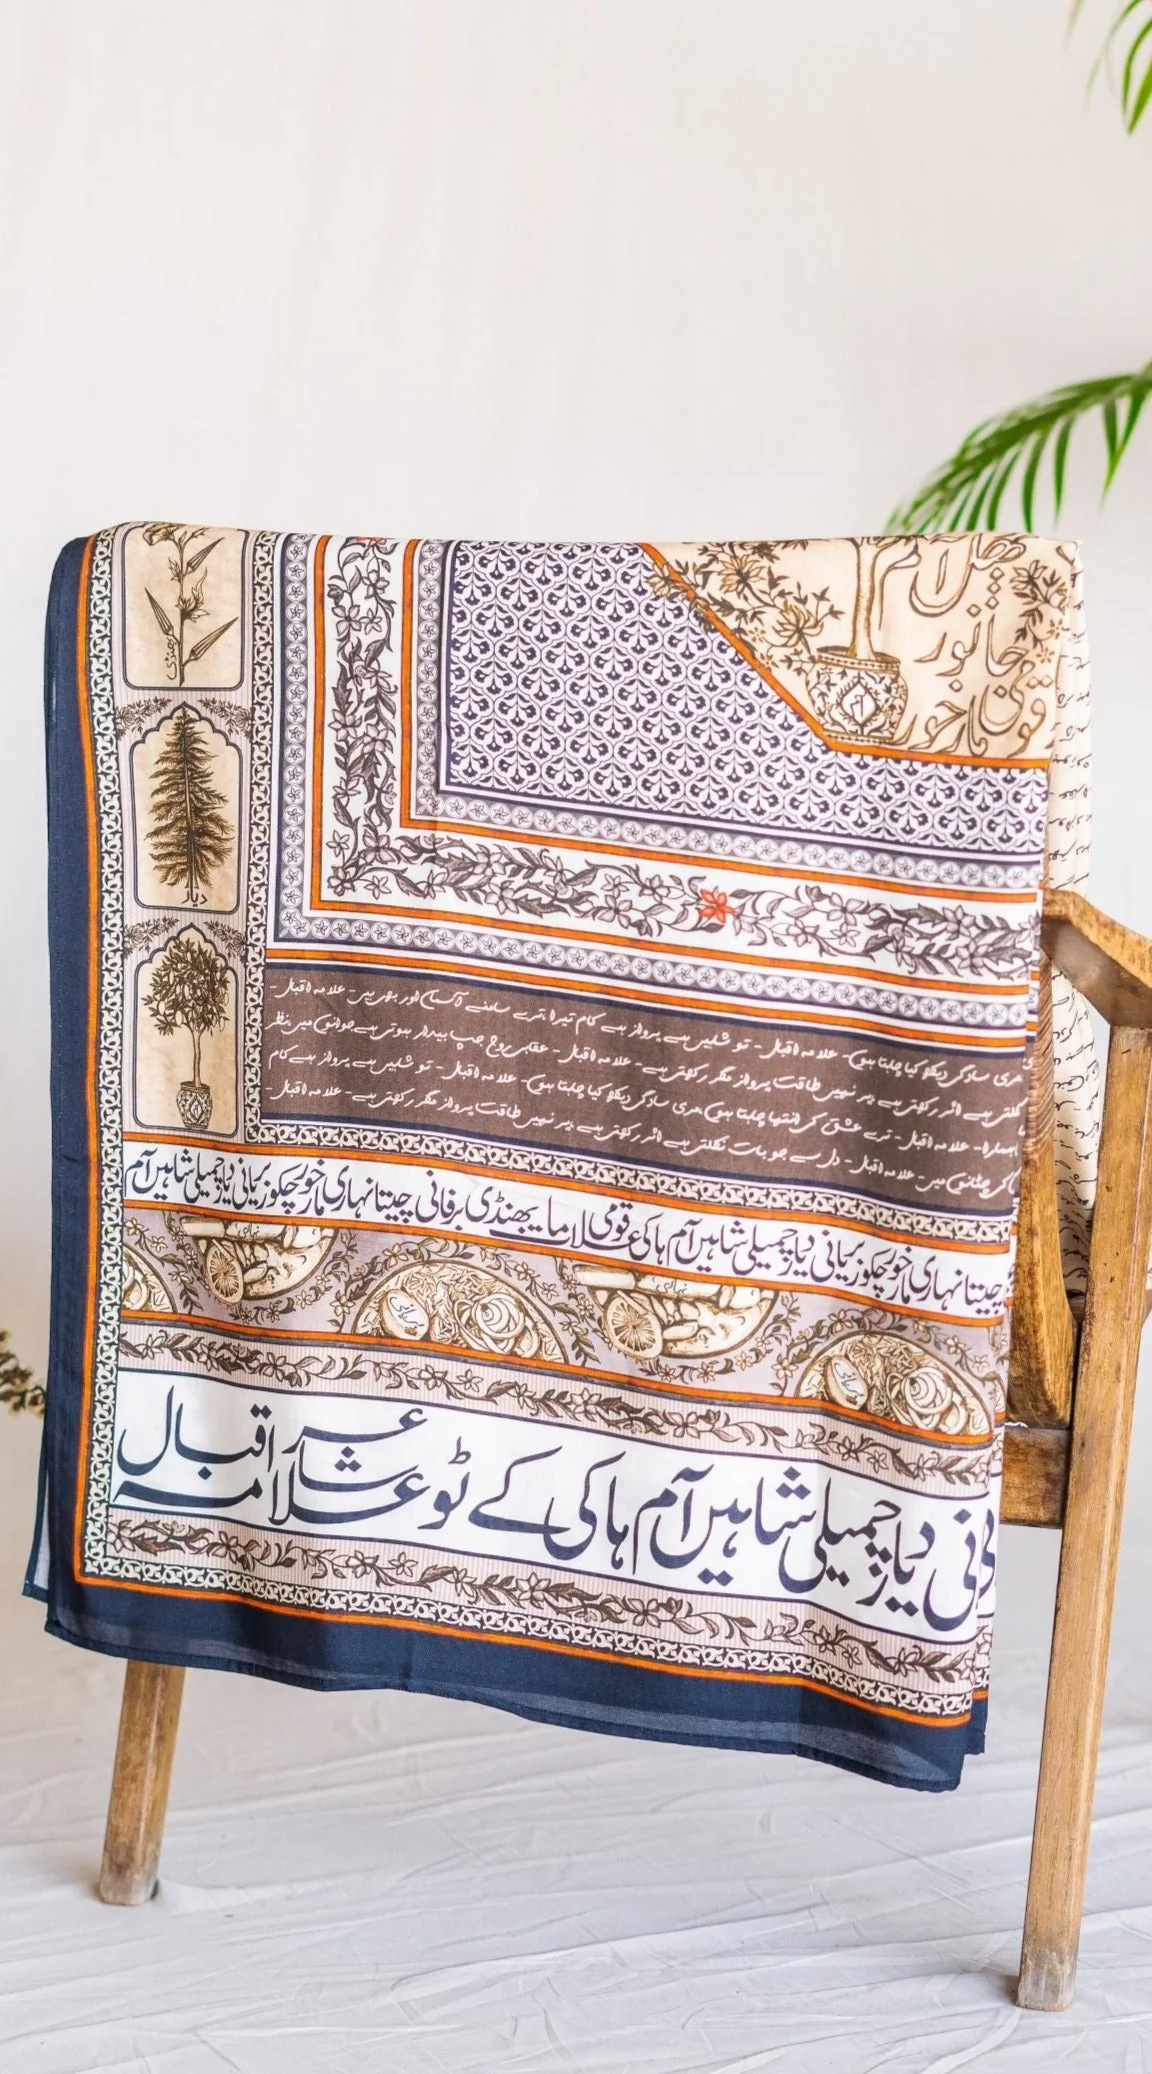 پھل آم
جانور
قومی مارخور
بھنڈی
دیار
مری سادگی دیکھ کیا چاہتا ہوں - علامہ اقبال - تو شاہیں ہے پرواز ہے کام تیرا ترے سامنے آسماں اور بھی ہیں - علامہ اقبال -
نکلتی ہے اثر رکھتی ہے پر نہیں طاقت پرواز مگر رکھتی ہے - علامہ اقبال - عقابی روح جب بیدار ہوتی ہے جوانوں میں نظر
بسیرا - علامہ اقبال - ترے عشق کی انتہا چاہتا ہوں مری سادگی دیکھ کیا چاہتا ہوں - علامہ اقبال - تو شاہیں ہے پرواز ہے کام
کی چٹانوں میں - علامہ اقبال - دل سے جو بات نکلتی ہے اثر رکھتی ہے پر نہیں طاقت پرواز مگر رکھتی ہے - علامہ اقبال -
چیتا نہاری مارخور چکور بریانی دیار چمیلی شاہین آم ہاکی قومی بھنڈی برفانی چیتا نہاری مارخور چکور بریانی دیار چمیلی شاہین آم
نہاری
بریانی
نہاری
بریانی
دیار چمیلی شاہین آم ہاکی کے ٹو شاعر علامہ اقبال